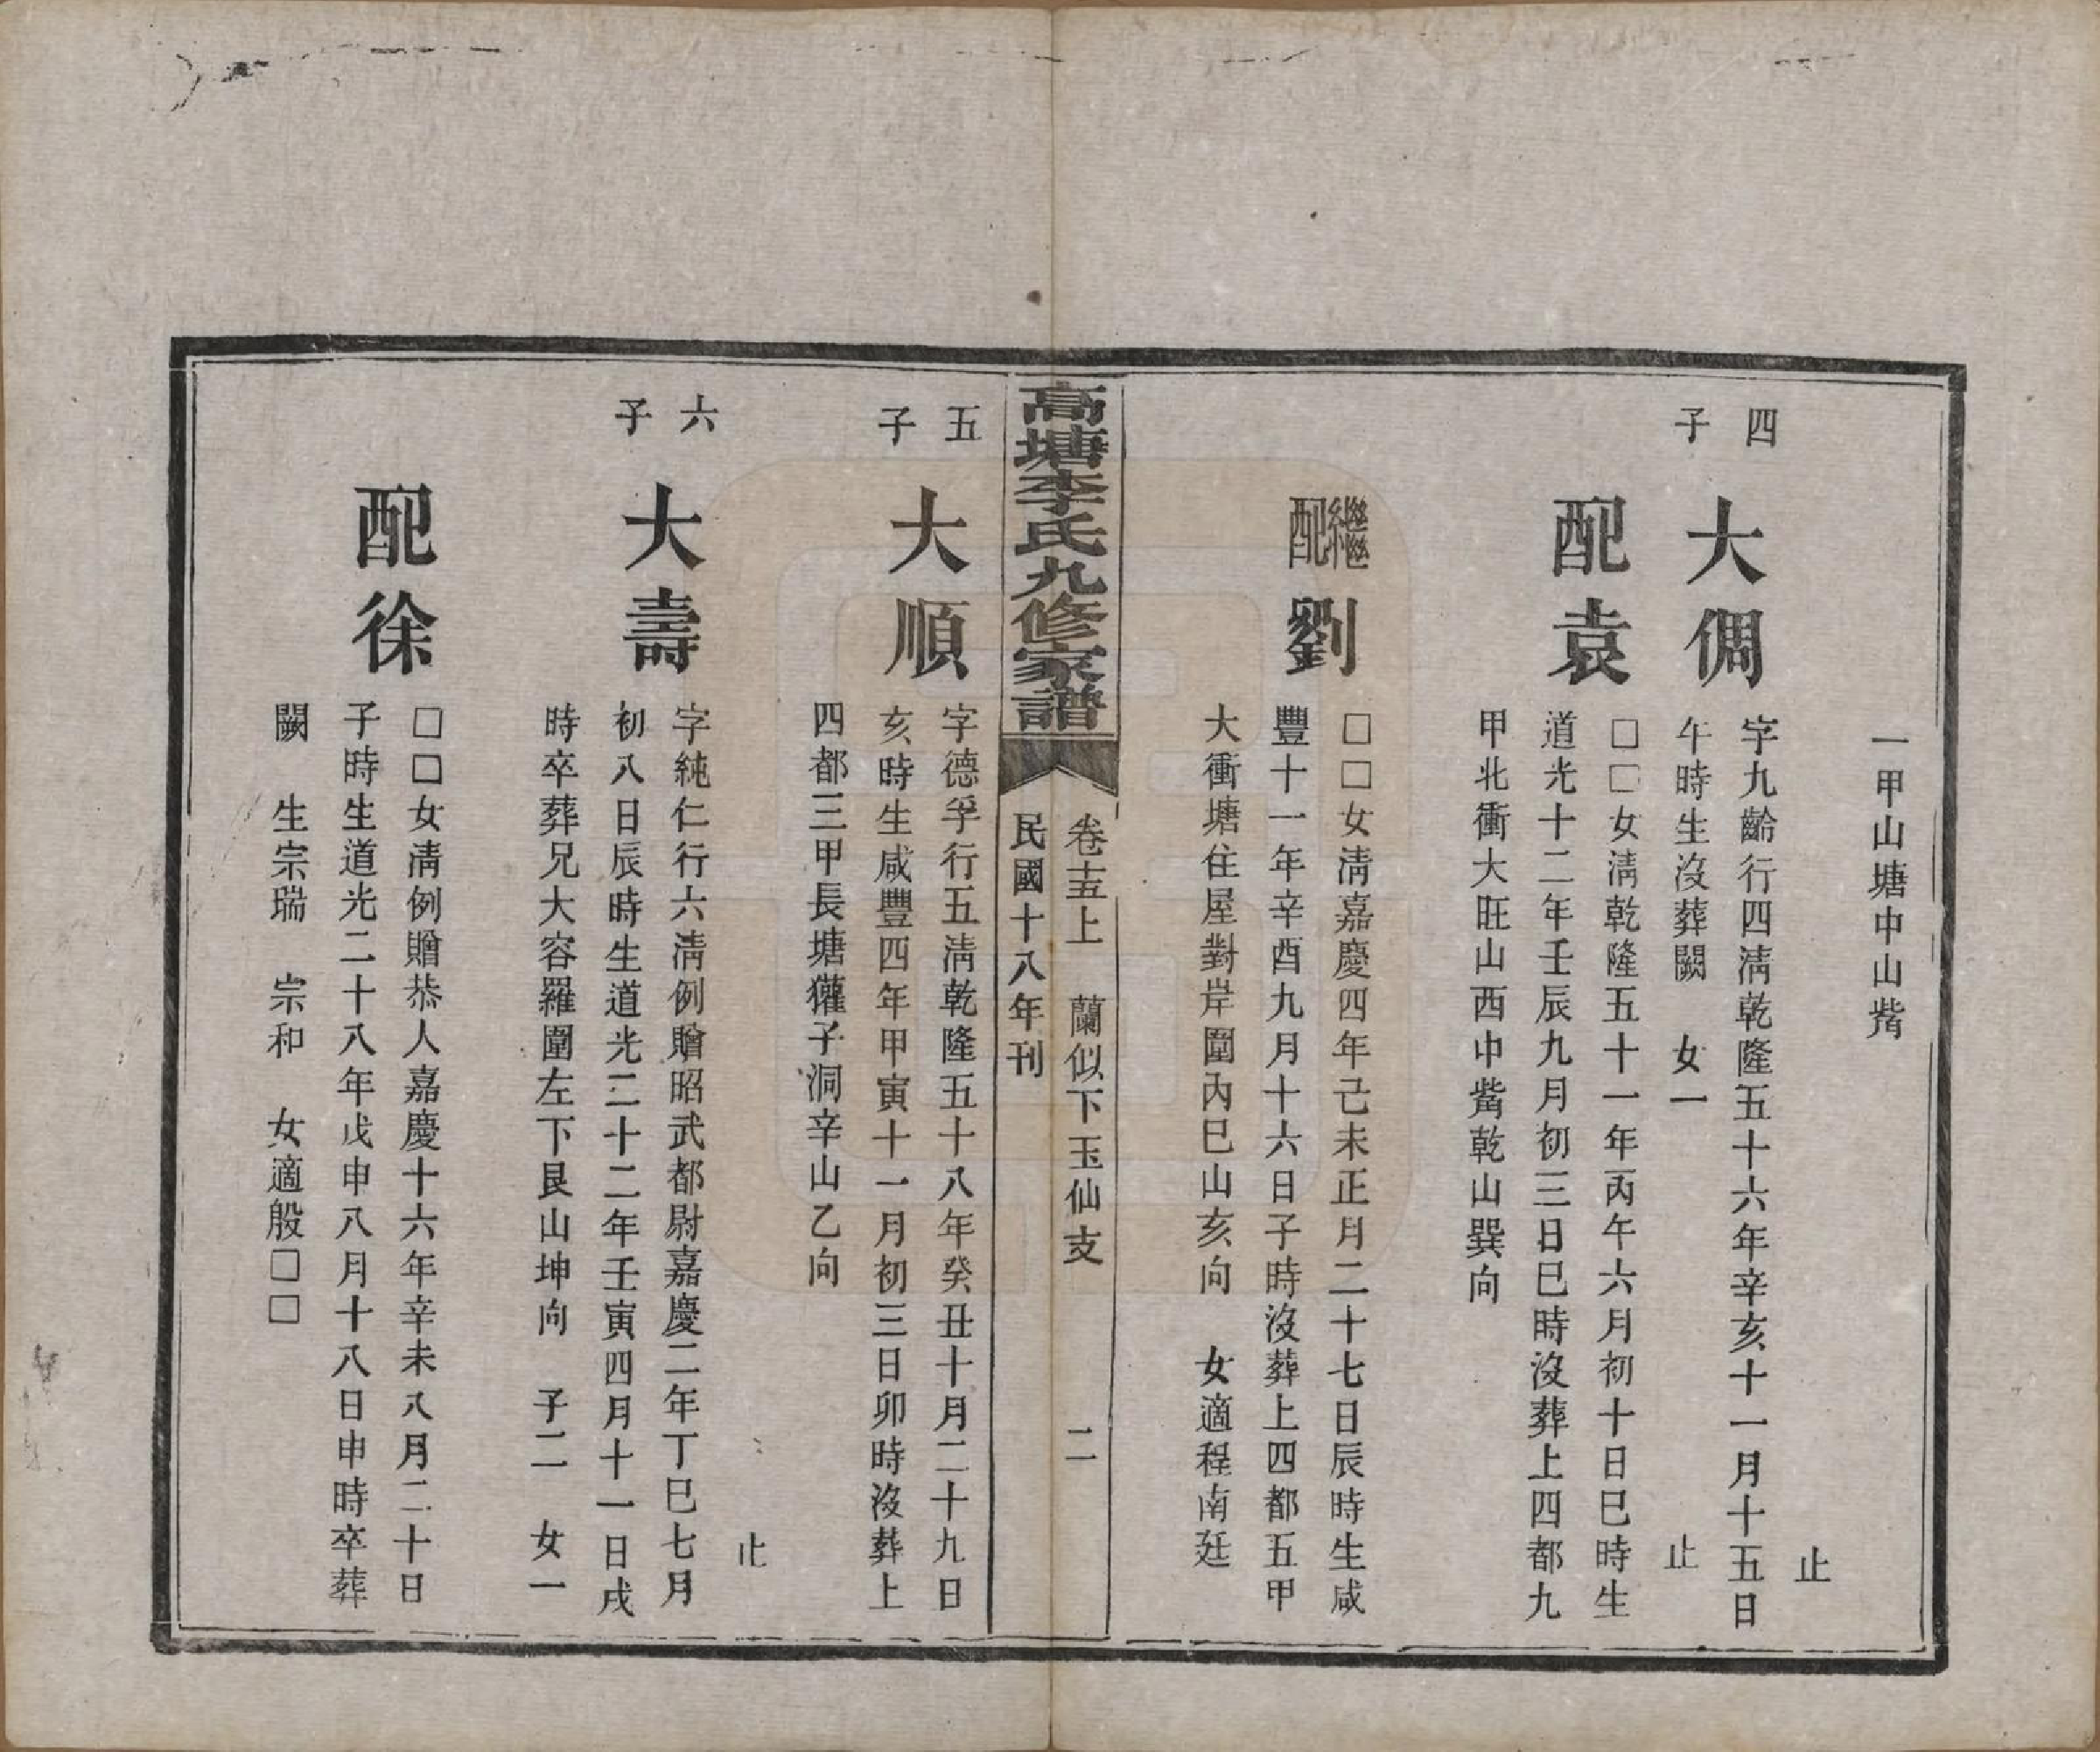 一甲山塘中山觜
止
四子
大倜
字九齡行四淸乾隆五十六年辛亥十一月十五日
午時生沒葬闕 女一
止
配袁
□□女淸乾隆五十一年丙午六月初十日巳時生
道光十二年壬辰九月初三日巳時沒葬上四都九
甲北衝大旺山西中觜乾山巽向
繼配劉
□□女淸嘉慶四年己未正月二十七日辰時生咸
豐十一年辛酉九月十六日子時沒葬上四都五甲
大衝塘住屋對岸圍內巳山亥向 女適程南廷
高塘李氏九修家譜
卷十五上 蘭似下玉仙支 二
民國十八年刊
五子
大順
字德孚行五淸乾隆五十八年癸丑十月二十九日
亥時生咸豐四年甲寅十一月初三日卯時沒葬上
四都三甲長塘獾子洞辛山乙向
止
六子
大壽
字純仁行六淸例贈昭武都尉嘉慶二年丁巳七月
初八日辰時生道光二十二年壬寅四月十一日戌
時卒葬兄大容羅圍左下艮山坤向 子二 女一
配徐
□□女淸例贈恭人嘉慶十六年辛未八月二十日
子時生道光二十八年戊申八月十八日申時卒葬
闕 生宗瑞 宗和 女適殷□□